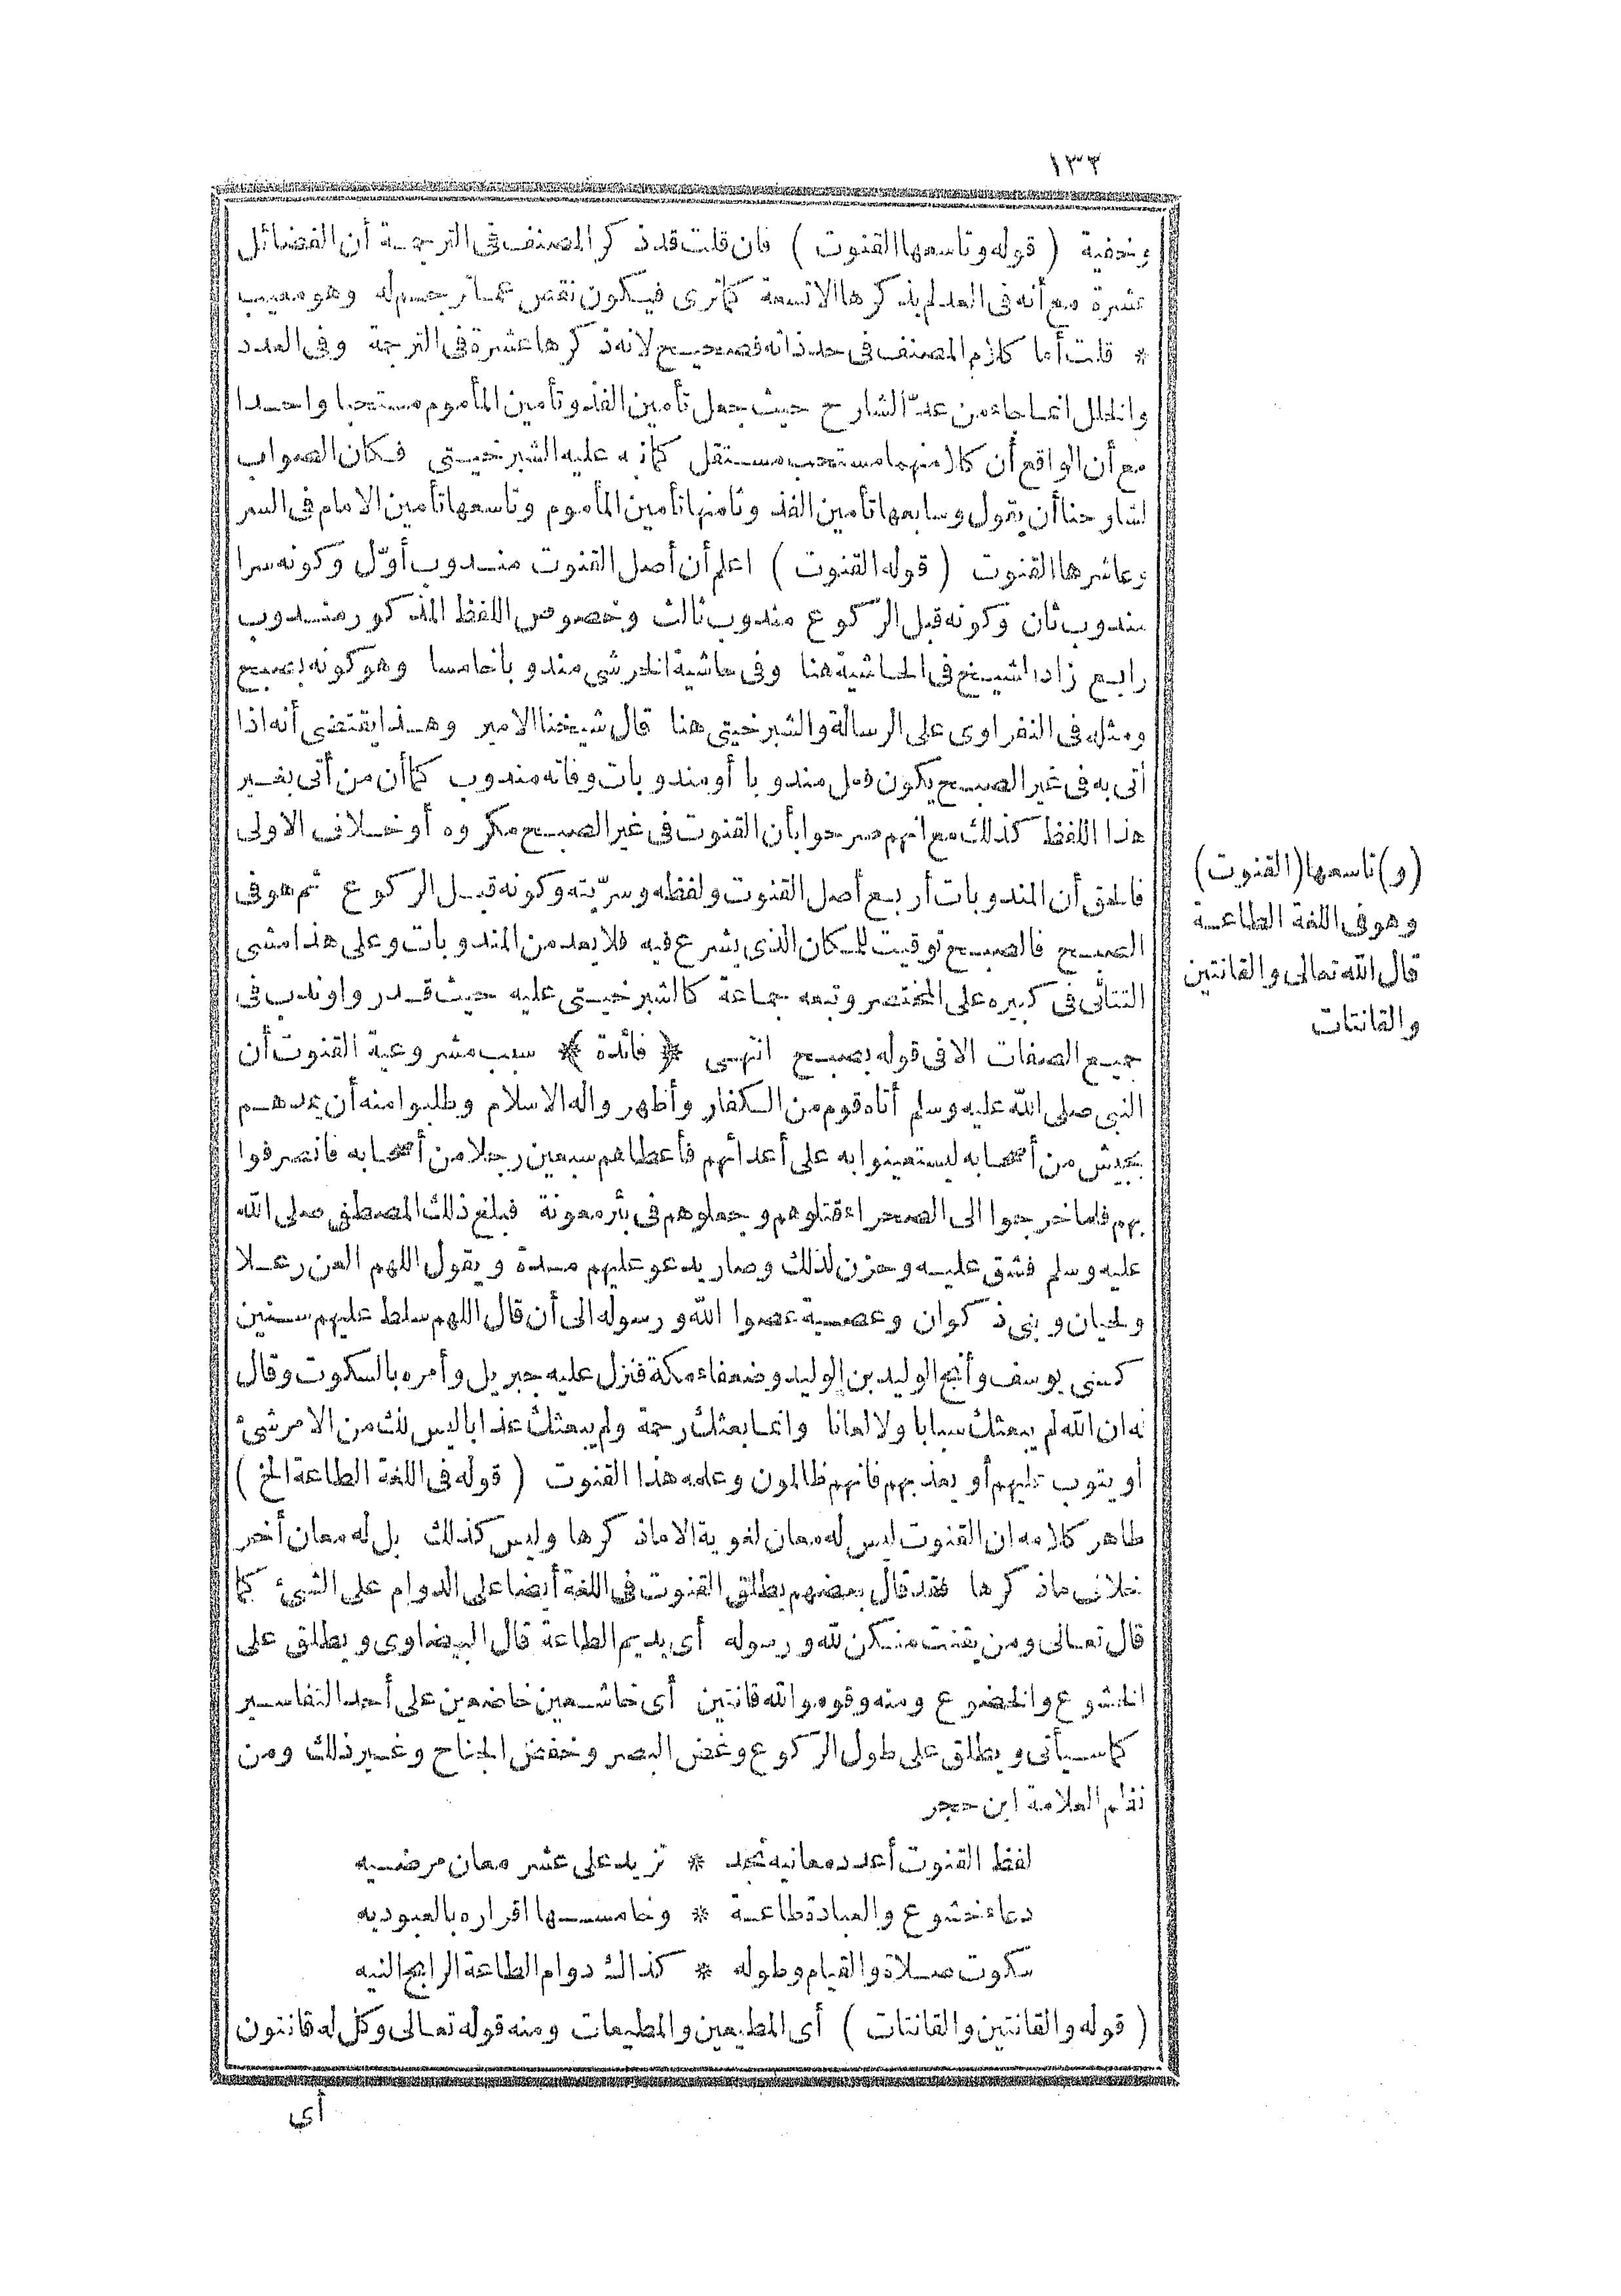 ١٣٣
وخفية ( قوله وتاسعها القنوت ) فان قلت قد ذكر المصنف فى الترجمة أن الفضائل
عشرة مع أنه فى العد لم يذكرها الا تسعة كما ترى فيكون نقص عما ترجم له وهو معيب
* قلت أما كلام المصنف فى حد ذاته فصحيح لانه ذكرها عشرة فى الترجمة وفى العدد
والخلل انما جاء من عدّ الشارح حيث جعل تأمين الفذ وتأمين المأموم مستحبا واحدا
مع أن الواقع أن كلا منهما مستحب مستقل كما نبه عليه الشبرخيتى فكان الصواب
لشارحنا أن يقول وسابعها تأمين الفذ وثامنها تأمين المأموم وتاسعها تأمين الامام فى السر
وعاشرها القنوت ( قوله القنوت ) اعلم أن أصل القنوت مندوب أوّل وكونه سرا
مندوب ثان وكونه قبل الركوع مندوب ثالث وخصوص اللفظ المذكور مندوب
رابع زاد الشيخ فى الحاشية هنا وفى حاشية الخرشى مندوبا خامسا وهو كونه بصبح
ومثله فى النفراوى على الرسالة والشبرخيتى هنا قال شيخنا الامير وهذا يقتضى أنه اذا
أتى به فى غير الصبح يكون فعل مندوبا أو مندوبات وفاته مندوب كما أن من أتى بغير
هذا اللفظ كذلك مع انهم صرحوا بأن القنوت فى غير الصبح مكروه أو خلاف الاولى
فالحق أن المندوبات أربع أصل القنوت ولفظه وسرّيته وكونه قبل الركوع ثم هو فى
الصبح فالصبح توقيت للمكان الذى يشرع فيه فلا يعد من المندوبات وعلى هذا مشى
التتائى فى كبيره على المختصر وتبعه جماعة كالشبرخيتى عليه حيث قدر واو ندب فى
جميع الصفات الا فى قوله بصبح انتهى ﴿ فائدة ﴾ سبب مشروعية القنوت أن
النبى صلى الله عليه وسلم أتاه قوم من الكفار وأظهر واله الاسلام وطلبوا منه أن يمدهم
بجيش من أصحابه ليستعينوا به على أعدائهم فأعطاهم سبعين رجلا من أصحابه فانصرفوا
بهم فلما خرجوا الى الصحراء قتلوهم وجعلوهم فى بئر معونة فبلغ ذلك المصطفى صلى الله
عليه وسلم فشق عليه وحزن لذلك وصار يدعو عليهم مدة ويقول اللهم العن رعلا
ولحيان وبنى ذكوان وعصية عصوا الله ورسوله الى أن قال اللهم سلط عليهم سنين
كسنى يوسف وأنج الوليد بن الوليد وضعفاء مكة فنزل عليه جبريل وأمره بالسكوت وقال
له ان الله لم يبعثك سبابا ولا لعانا وانما بعثك رحمة ولم يبعثك عذابا ليس لك من الامر شئ
أو يتوب عليهم أو يعذبهم فانهم ظالمون وعلمه هذا القنوت ( قوله فى اللغة الطاعة الخ )
ظاهر كلامه ان القنوت ليس له معان لغوية الا ما ذكرها وليس كذلك بل له معان أخر
خلاف ما ذكرها فقد قال بعضهم يطلق القنوت فى اللغة أيضا على الدوام على الشئ كما
قال تعالى ومن يقنت منكن لله ورسوله أى يديم الطاعة قال البيضاوى ويطلق على
الخشوع والخضوع ومنه وقوموا لله قانتين أى خاشعين خاضعين على أحد التفاسير
كما سيأتى ويطلق على طول الركوع وغض البصر وخفض الجناح وغير ذلك ومن
نظم العلامة ابن حجر
لفظ القنوت أعدد معانيه تجد * تزيد على عشر معان مرضيه
دعاء خشوع والعبادة طاعة * وخامسها اقراره بالعبوديه
سكوت صلاة والقيام وطوله * كذاك دوام الطاعة الرابح النيه
( قوله والقانتين والقانتات ) أى المطيعين والمطيعات ومنه قوله تعالى وكل له قانتون
أى
(و) تاسعها (القنوت)
وهو فى اللغة الطاعة
قال الله تعالى والقانتين
والقانتات